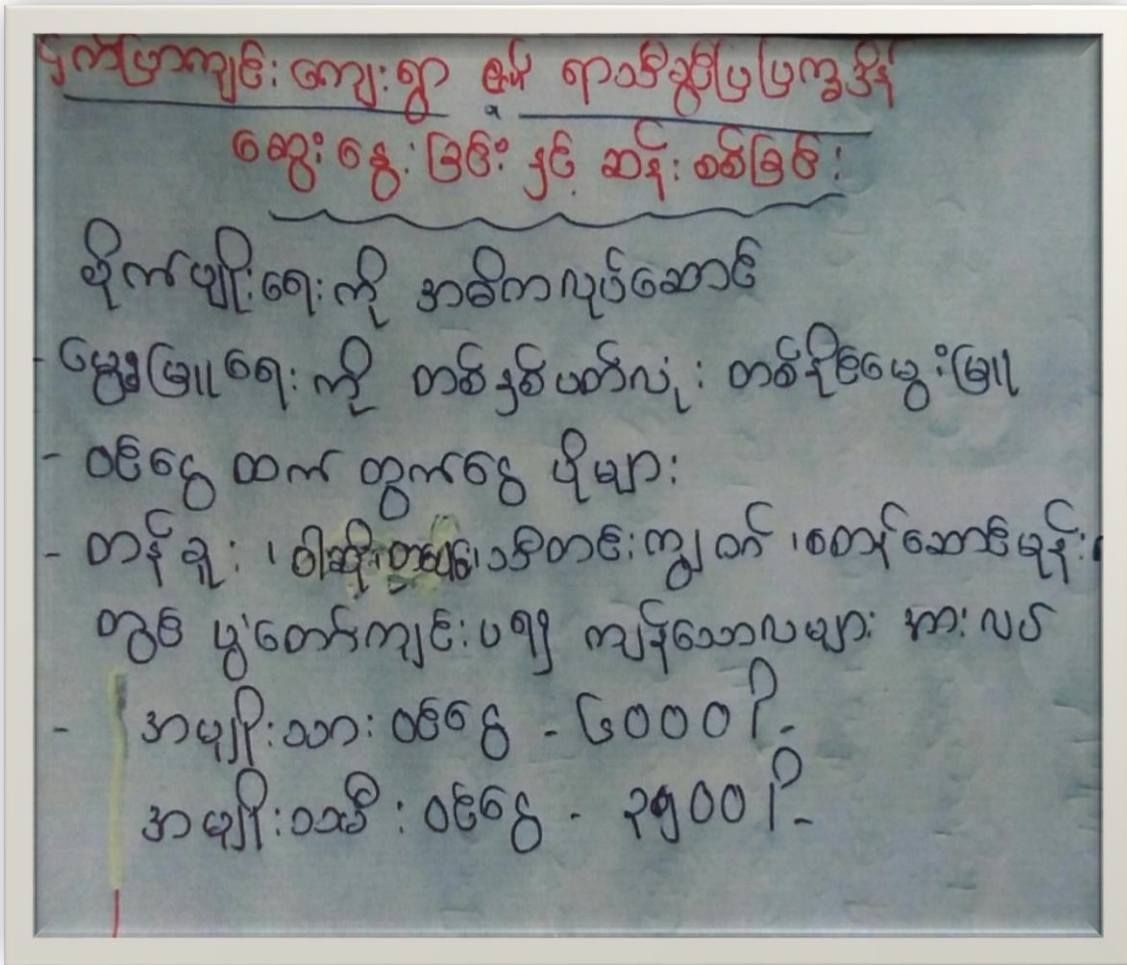 ငှက်ပြာကျင်း ကျေးရွာ ဇုံ၏ ရာသီခွင်ပြ ပြက္ခဒိန်
ဆွေးနွေးခြင်း နှင့် ဆန်းစစ်ခြင်း
စိုက်ပျိုးရေးကို အဓိကလုပ်ဆောင်
- မွေးမြူရေးကို တစ်နှစ်ပတ်လုံး တစ်နိုင်မွေးမြူ
- ဝင်ငွေထက် တွက်ငွေ ပိုများ
- တန်ခူး၊ ဝါဆို၊ သီတင်းကျွတ်၊ တန်ဆောင်မုန်း၊
တွင် ပွဲတော်ကျင်းပ၍ ကျန်သောလများ အားလပ်
- အမျိုးသား ဝင်ငွေ - ၆၀၀၀ /-
အမျိုးသမီး ဝင်ငွေ - ၃၅၀၀ /-